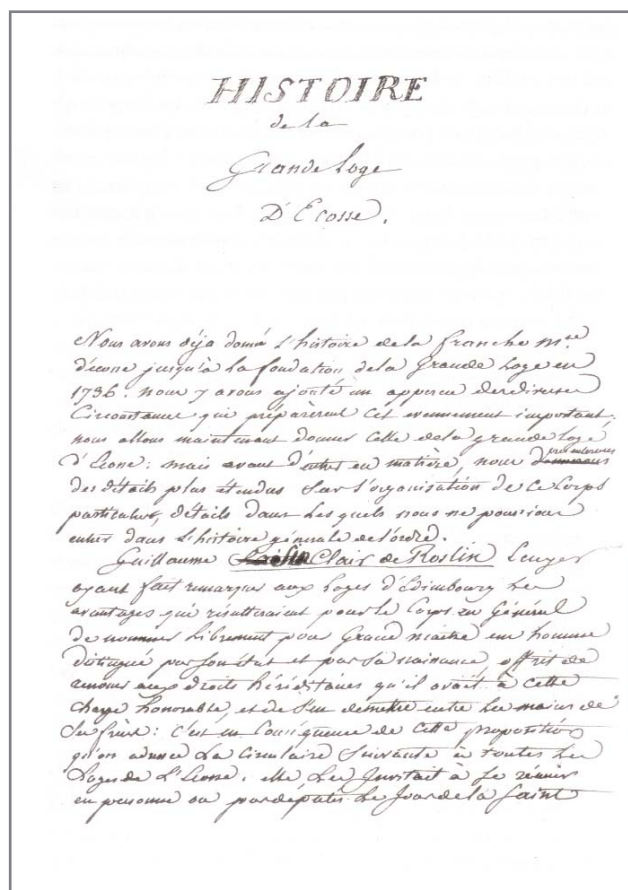 HISTOIRE
de la
Grande Loge
D'Ecosse.
Nous avons déja donné L'histoire de la franche m.rie
d'écosse jusqu'à la fondation de la Grande Loge en
1736. nous y avons ajouté un appercu des diverses
Circonstances qui préparèrent cet evennement important.
nous allons maintenant donner celle de la grande Loge
d'Ecosse: mais avant d'entrer en matière, nous présenterons
des détails plus étendus Sur l'organisation de ce Corps
particulier, détails dans Les quels nous ne pouvions
entrer dans L'histoire générale de l'ordre.
Guillaume Clair de Roslin
ayant fait remarquer aux Loges d'Edimbourg Les
avantages qui résulteraient pour le Corps en Général
de nommer Librement pour Grand maitre un homme
distingué par son état et par sa naissance, offrit de
renoncer aux droits héréditaires qu'il avait à cette
charge honorable, et de s'en demettre entre Les mains de
Ses frères: C'est en Conséquence de Cette proposition
qu'on adressa La Circulaire Suivante à toutes Les
Loges de L'Ecosse. elle Les Invitait à Se réunir
en personne ou par députés Le Jour de la Saint